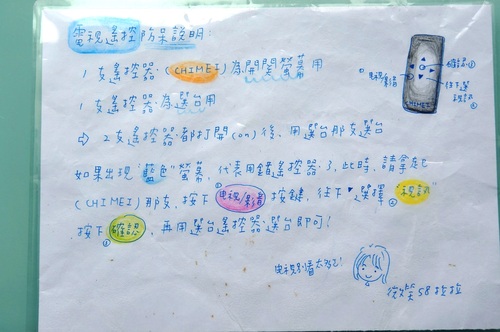 電視遙控防呆說明:
1支遙控器(CHIMEI)為開關螢幕用
1支遙控器為選台用
⇨ 2支遙控器都打開(on)後,用選台那支選台
如果出現"藍色"螢幕,代表用錯遙控器了,此時,請拿起
(CHIMEI)那支,按下①电視/影音按鍵,往下▼選擇②"視訊"
按下③確認,再用選台遙控器選台即可!
电視別看太久!
確認③
往下選
視訊②
CHIMEI